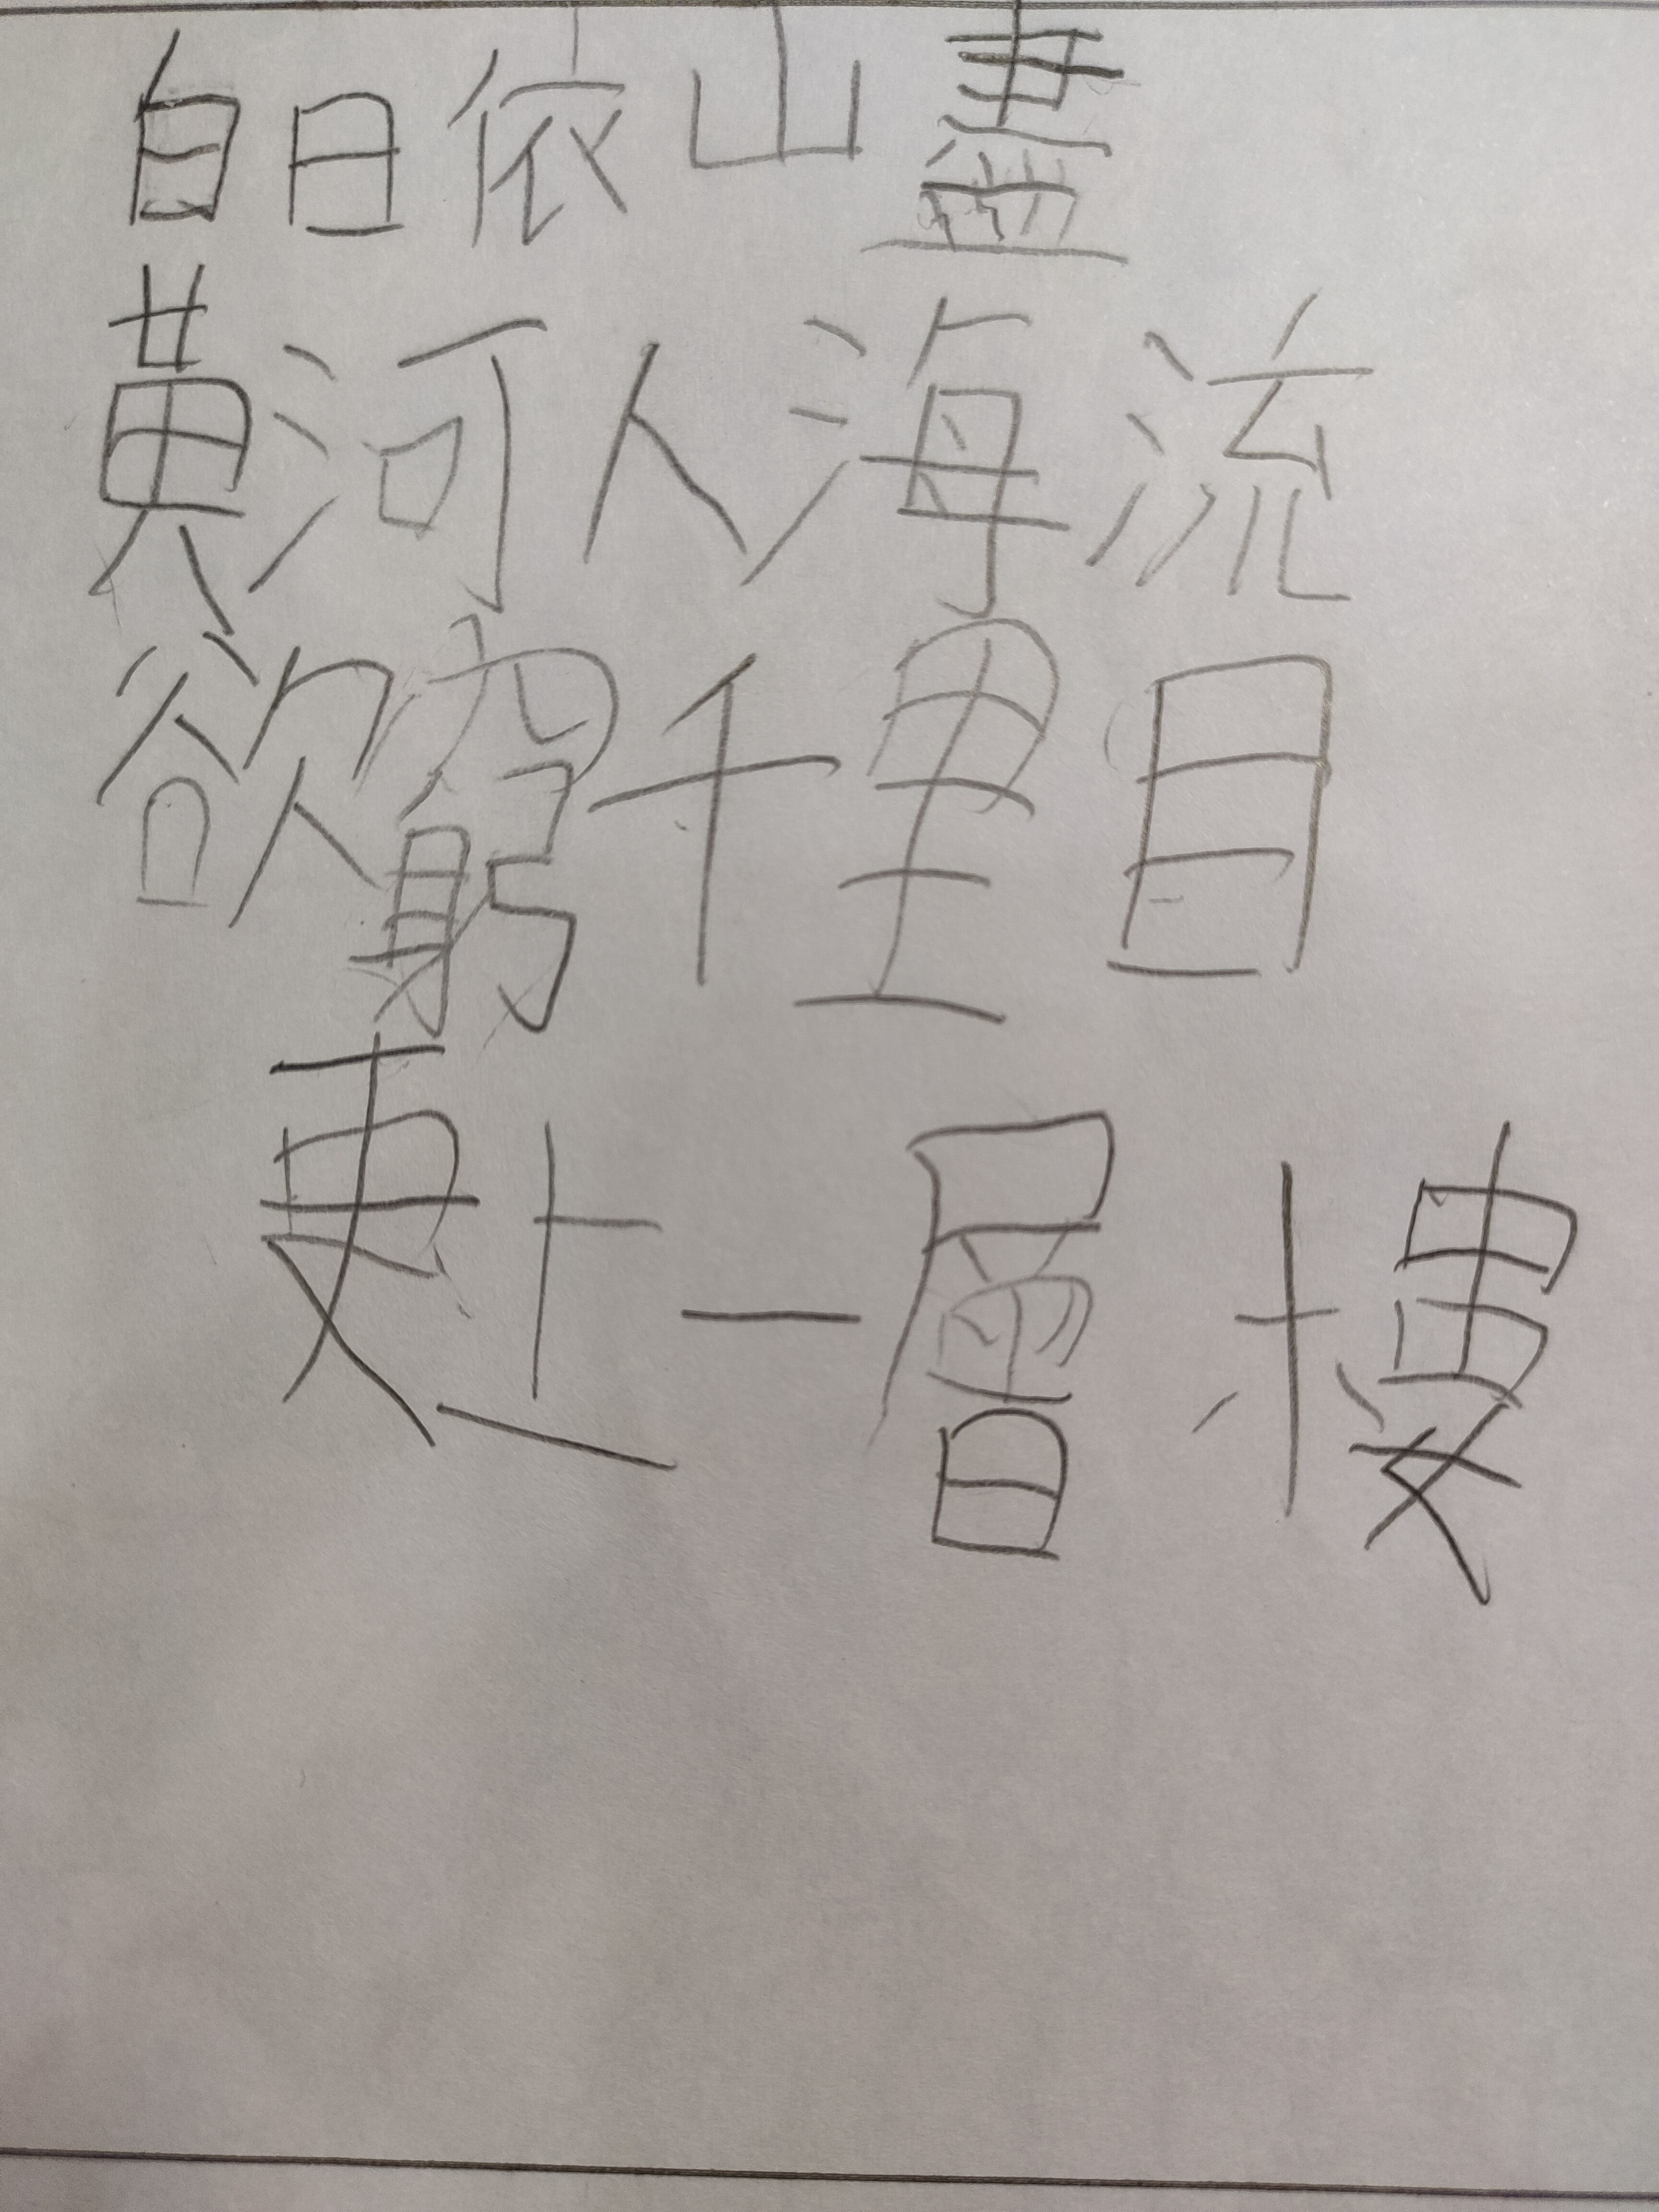 白日依山盡
黃河人海流
欲窮千里目
更上一層樓